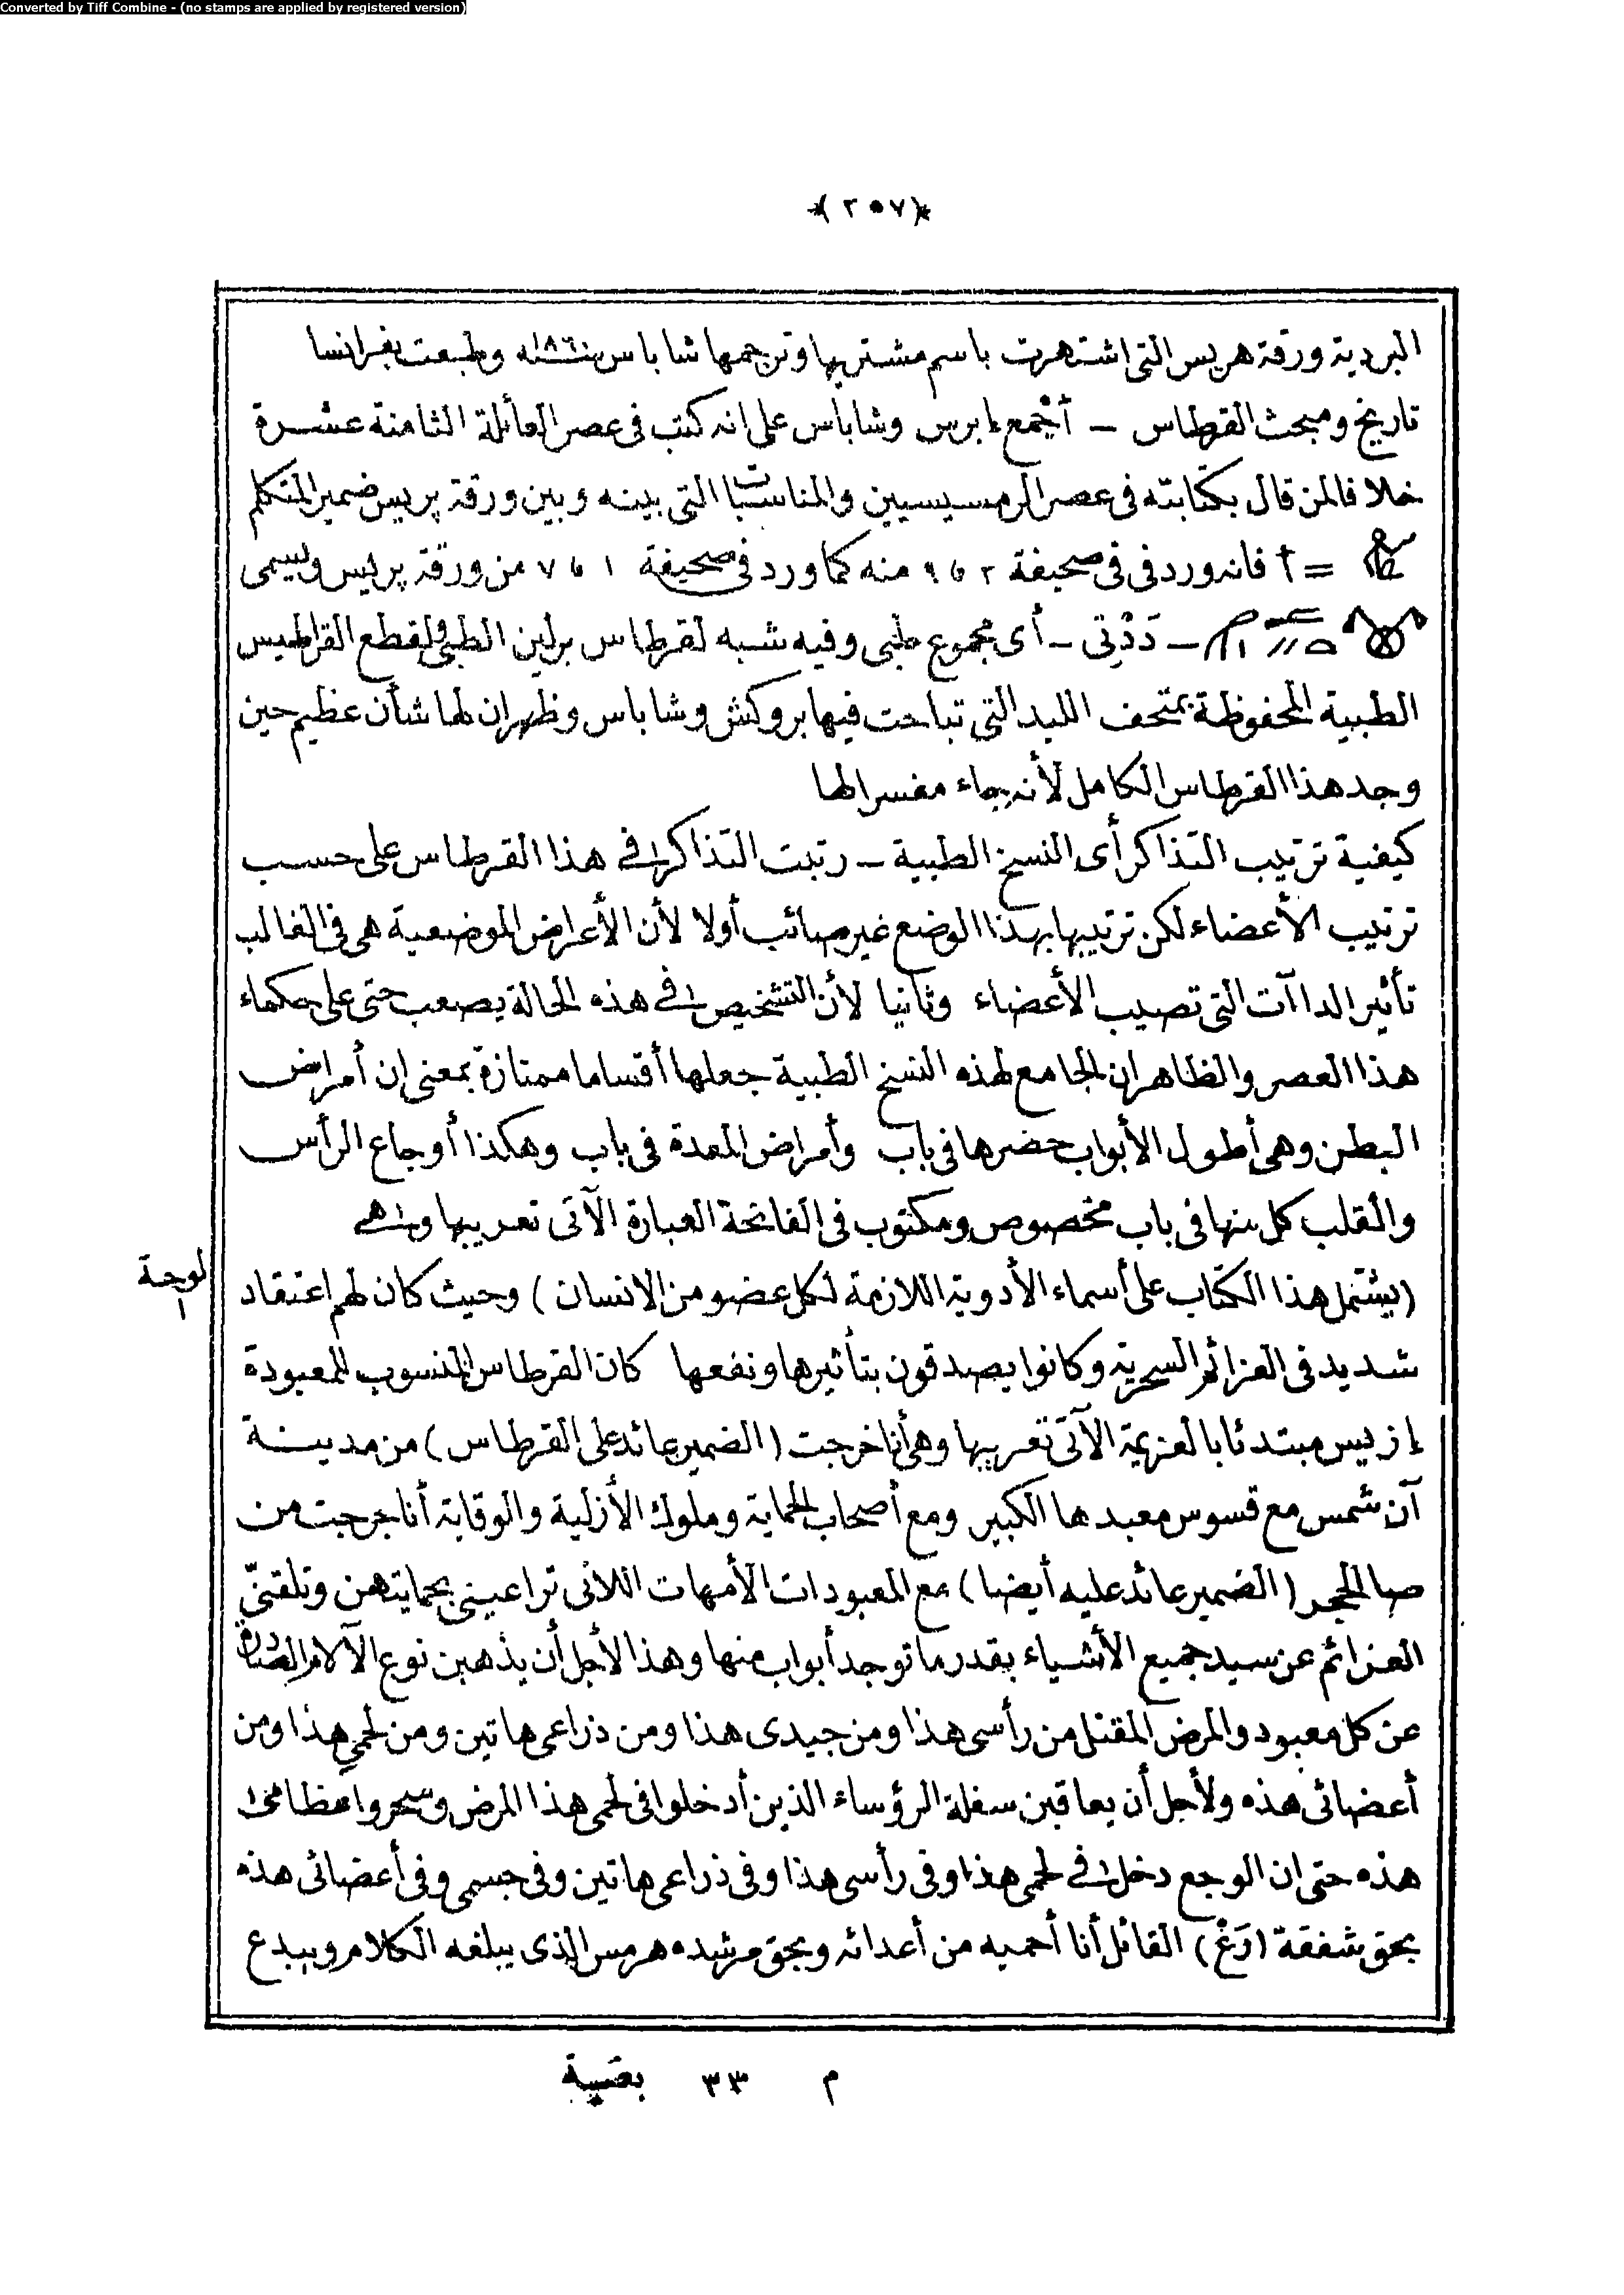 Converted by Tiff Combine - (no stamps are applied by registered version)
*(٢٥٧)*
البردية ورقة هريس التى اشتهرت باسم مشتريها وترجمها شاباس سنة ١٨٦٠ وطبعت بفرانسا
تاريخ ومبحث القرطاس – أجمع إبرس وشاباس على انه كتب فى عصر العائلة الثامنة عشرة
خلافا لمن قال بكتابته فى عصر الرمسيسيين والمناسبات التى بينه وبين ورقة پريس ضمير المتكلم
= أ فانه ورد فى فى صحيفة ٢ و ٩ منه كما ورد فى صحيفة ١ و ٧ من ورقة پريس ويسمى
– دَدْتِى – أى مجموع طبى وفيه شبه لقرطاس برلين الطبى ولقطع القراطيس
الطبية المحفوظة بمتحف الليد التى تباحث فيها بروكش وشاباس وظهر ان لها شأن عظيم حين
وجد هذا القرطاس الكامل لأنه جاء مفسرا لها
كيفية ترتيب التذاكر أى النسخ الطبية – رتبت التذاكر فى هذا القرطاس على حسب
ترتيب الأعضاء لكن ترتيبها بهذا الوضع غير صائب أولا لأن الأعراض الموضعية هى فى الغالب
تأثير الداآت التى تصيب الأعضاء وثانيا لأن التشخيص فى هذه الحالة يصعب حتى على حكماء
هذا العصر والظاهر ان الجامع لهذه النسخ الطبية جعلها أقساما ممتازة بمعنى ان أمراض
البطن وهى أطول الأبواب حضرها فى باب وأمراض المعدة فى باب وهكذا أوجاع الرأس
والقلب كل منها فى باب مخصوص ومكتوب فى الفاتحة العبارة الآتى تعريبها وهى
لوحة
١
(يشتمل هذا الكتاب على أسماء الأدوية اللازمة لكل عضو من الانسان) وحيث كان لهم اعتقاد
شديد فى العزائم السحرية وكانوا يصدقون بتأثيرها ونفعها كان القرطاس المنسوب للمعبودة
إزيس مبتدئا بالعزيمة الآتى تعريبها وهى أنا خرجت (الضمير عائد على القرطاس) من مدينة
آن شمس مع قسوس معبدها الكبير ومع أصحاب الحماية وملوك الأزلية والوقاية أنا خرجت من
صا الحجر (الضمير عائد عليه أيضا) مع المعبودات الأمهات اللاتى تراعينى بحمايتهن وتلقننى
العزائم عن سيد جميع الأشياء بقدر ما توجد أبواب منها وهذا لأجل أن يذهبن نوع الآلام الصادرة
عن كل معبود والمرض المقتل من رأسى هذا ومن جيدى هذا ومن ذراعى هاتين ومن لحمى هذا ومن
أعضائى هذه ولأجل أن يعاقبن سفلة الرؤساء الذين أدخلوا فى لحمى هذا المرض وسحروا عظامى
هذه حتى ان الوجع دخل فى لحمى هذا وفى رأسى هذا وفى ذراعى هاتين وفى جسمى وفى أعضائى هذه
بحق شفقة (رَغ) القائل أنا أحميه من أعدائه وبحق مرشده هرمس الذى يبلغه الكلام ويبدع
م ٣٣ بقية